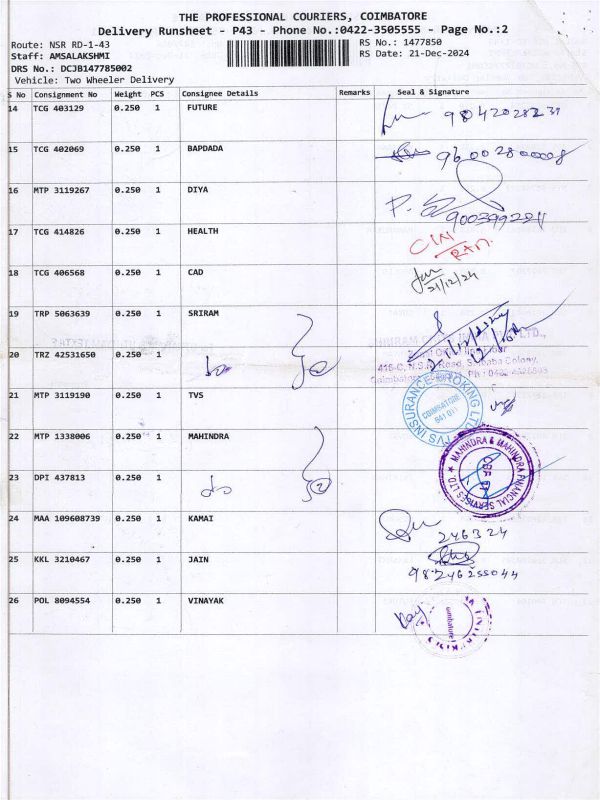 THE PROFESSIONAL COURIERS, COIMBATORE
Delivery Runsheet - P43 - Phone No.:0422-3505555 - Page No.:2
Route: NSR RD-1-43 RS No.: 1477850
Staff: AMSALAKSHMI RS Date: 21-Dec-2024
DRS No.: DCJB147785002
Vehicle: Two Wheeler Delivery
S No Consignment No Weight PCS Consignee Details Remarks Seal & Signature
14 TCG 403129 0.250 1 FUTURE
15 TCG 402069 0.250 1 BAPDADA
16 MTP 3119267 0.250 1 DIYA
17 TCG 414826 0.250 1 HEALTH
18 TCG 406568 0.250 1 CAD
21/12/24
19 TRP 5063639 0.250 1 SRIRAM
20 TRZ 42531650 0.250 1 do
415-C, N.S.R. Road, Saibaba Colony,
21 MTP 3119190 0.250 1 TVS
TVS INSURANCE BROKING LTD
COIMBATORE
641 011
22 MTP 1338006 0.250 1 MAHINDRA
MAHINDRA & MAHINDRA FINANCIAL SERVICES LTD.
23 DPI 437813 0.250 1 do 2
24 MAA 109608739 0.250 1 KAMAI
246324
25 KKL 3210467 0.250 1 JAIN
26 POL 8094554 0.250 1 VINAYAK